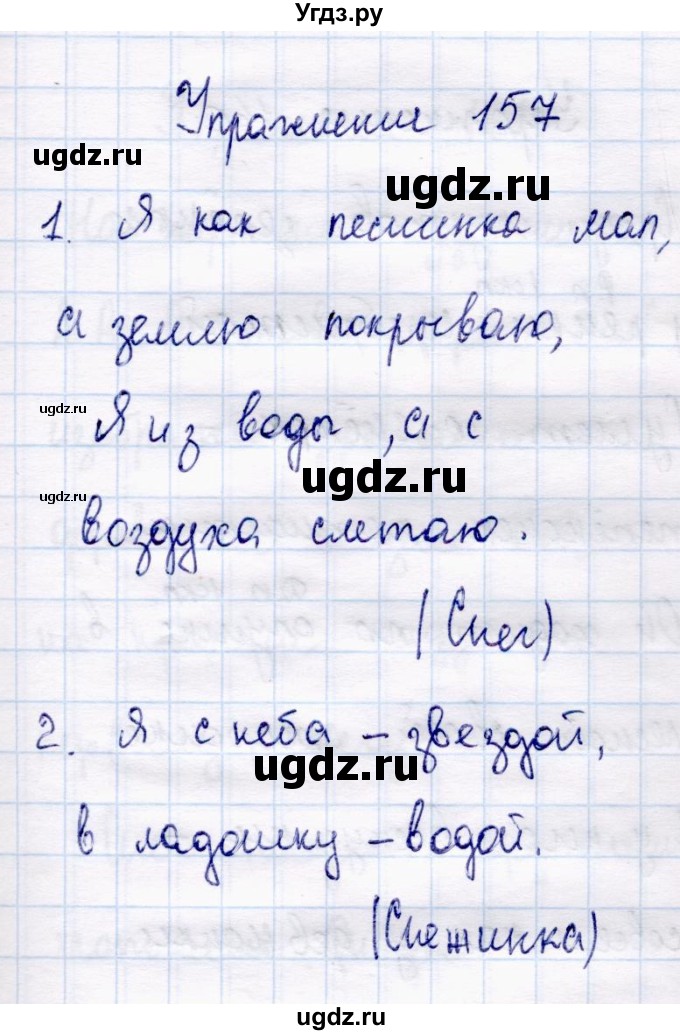 Угдз.ру
Упражнение 157
ugdz.ru
ugdz.ru
1. Я как песчинка мал,
а землю покрываю,
ugdz.ru
Я из воды, а с
ugdz.ru
ugdz.ru
воздуха слетаю.
(Снег)
2. Я с неба – звездой,
ugdz.ru
в ладошку – водой.
(Снежинка)
ugdz.ru